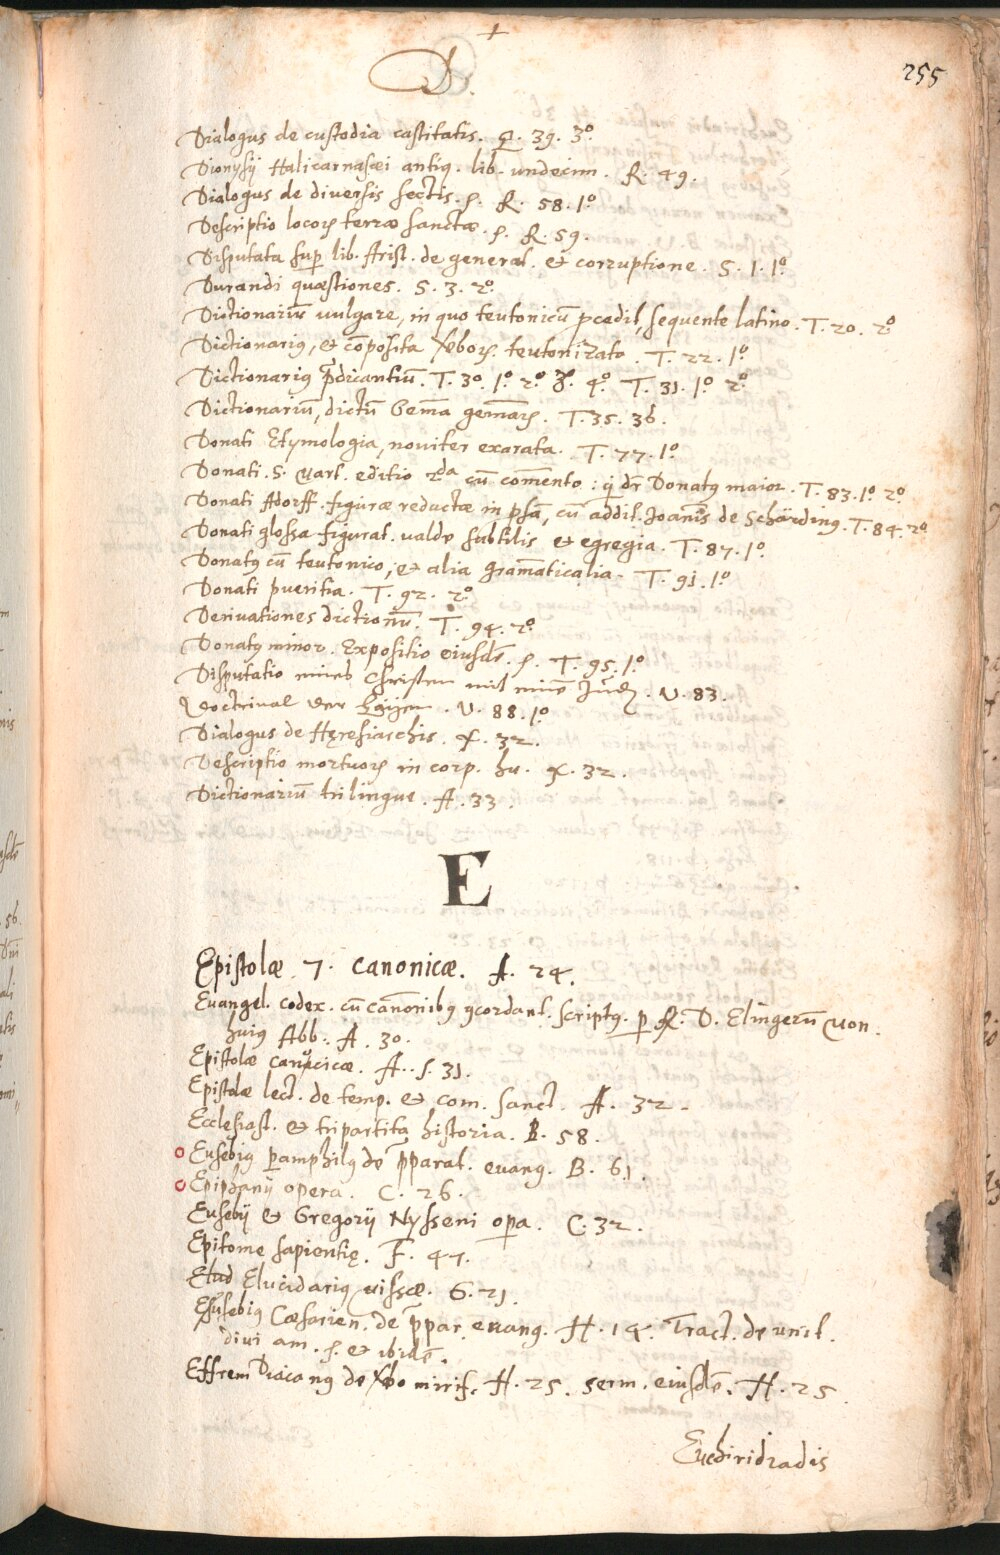 D.
255
Dialogus de custodia castitatis. Q. 39. 3º
Dionysij Halicarnasæi antiq. lib. undecim. R. 49.
Dialogus de diversis sectis. s. R. 58. 1º
Descriptio locorꝫ terræ sanctæ. s. R. 59.
Disputata sup lib. Arist. de generat. et corruptione. S. 1. 1º
Durandi quæstiones. S. 3. 2º
Dictionariū vulgare, in quo teutonicū pcedit, sequente latino. T. 20. 2º
Dictionariꝰ, et cōposita teutonizato. T. 22. 1º
Dictionariꝰ p̄dicantiū. T. 30. 1º 2º 3º 4º T. 31. 1º 2º
Dictionariū, dictū Gem̄a gem̄arꝫ. T. 35. 36.
Donati Etymologia, noviter exarata. T. 77. 1º
Donati. S. Vart. editio 2da cū com̄ento: q dr̄ Donatꝰ maior. T. 83. 1º 2º
Donati Adorff. figuræ redactæ in psā, cū addit. Joan̄is de Schärding. T. 84. 2º
Donati glossa figurat. valde subtilis et egregia. T. 87. 1º
Donatꝰ cū teutonico, et alia gram̄aticalia. T. 91. 1º
Donati pueritia. T. 92. 2º
Derivationes dictionū. T. 94. 2º
Donatꝰ minor. Expositio eiusdē. s. T. 95. 1º
Disputatio eines Christen mit einē Judē. V. 83.
Doctrinal der Layen. V. 88. 1º
Dialogus de Hęresiarchis. X. 32.
Descriptio mortuorꝫ in corp. hu. X. 32.
Dictionariū trilingue. A. 33.
E
Epistolæ 7. canonicæ. A. 24.
Evangel. codex. cū canonibꝰ ꝯcordant. scriptꝰ. p R. D. Elingerū von.
huiꝰ Abb. A. 30.
Epistolæ canōcicæ. A. s. 31.
Epistolæ lect. de temp. et com. sanct. A. 32.
Ecclesiast. et tripartita historia. B. 58.
Eusebiꝰ pamphilꝰ de p̄parat. evang. B. 61.
Epiphanij opera. C. 26.
Eusebij et Gregorij Nysseni opa. C. 32.
Epitome sapientię. F. 47.
Elucidariꝰ G. 21.
Eusebiꝰ Cæsarien. de p̄par. evang. H. 14. Tract. de unit.
divi am. s. et ibidē.
Effrem Diaconꝰ de mirif. H. 25. serm. eiusdē. H. 25
Euchiridiadis